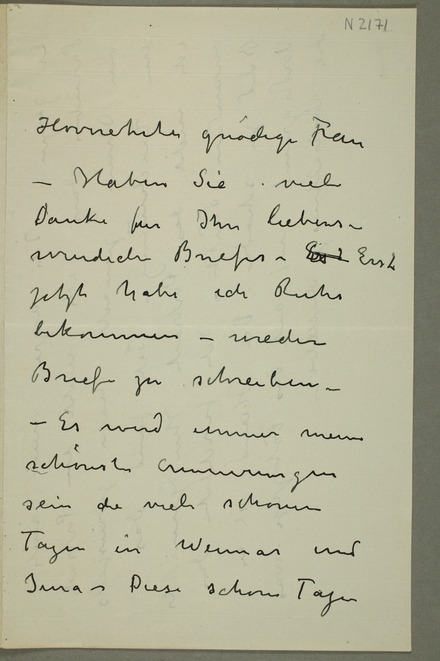 N 2171
Hovverehrte gnädige Frau
– Haben Sie viele
Danke für Ihr liebens-
wurdiche Briefes – Erst
jetzt habe ich Ruhe
bekommen – meder
Briefe zu schreiben –
– Es wird immer meine
schönste errinnerungen
sein die viele schonen
Tagen in Weimar und
Jena – Diese schone Tagen